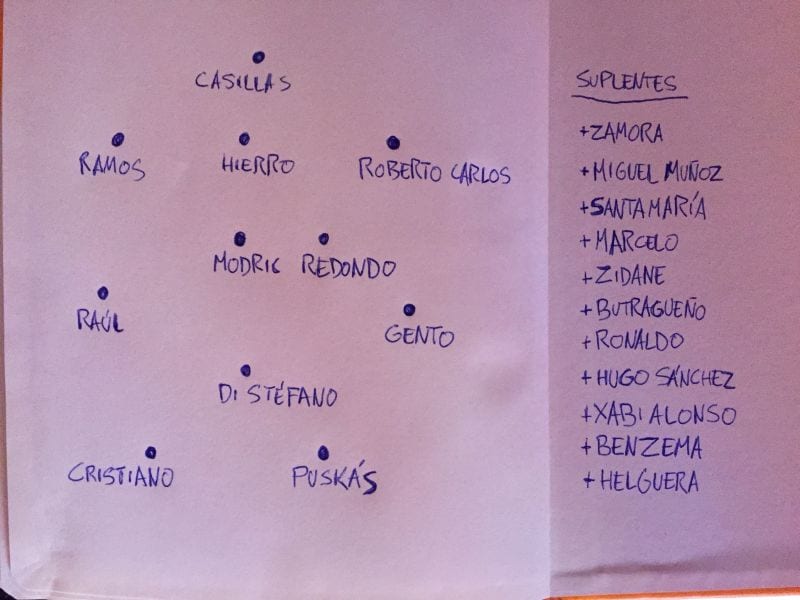 CASILLAS
RAMOS HIERRO ROBERTO CARLOS
MODRIC REDONDO
RAÚL GENTO
DI STÉFANO
CRISTIANO PUSKÁS
SUPLENTES
+ZAMORA
+MIGUEL MUÑOZ
+SANTAMARÍA
+MARCELO
+ZIDANE
+BUTRAGUEÑO
+RONALDO
+HUGO SÁNCHEZ
+XABI ALONSO
+BENZEMA
+HELGUERA